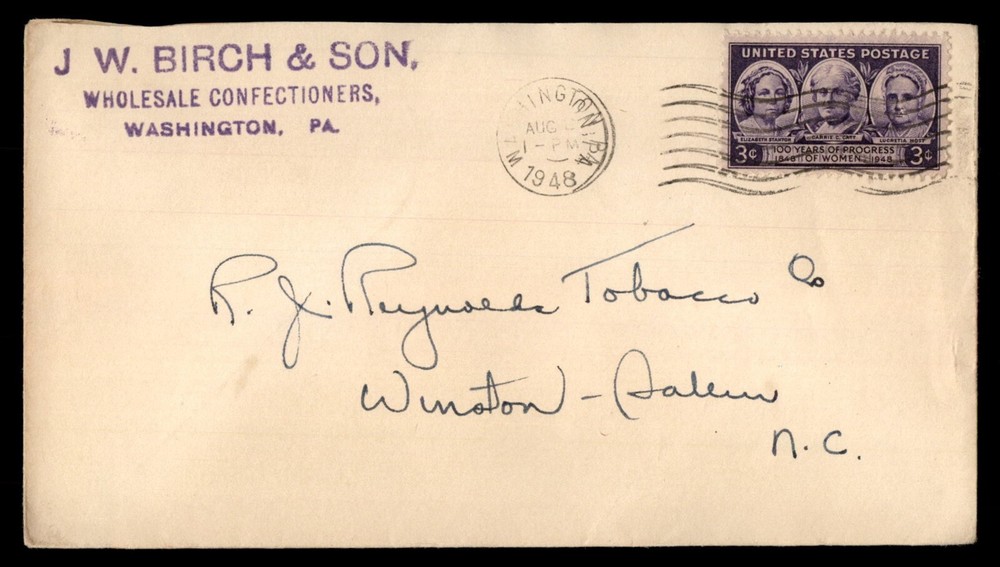 J. W. BIRCH & SON,
WHOLESALE CONFECTIONERS,
WASHINGTON, PA.
WASHINGTON, PA
AUG
1-PM
1948
UNITED STATES POSTAGE
ELIZABETH STANTON CARRIE C. CATT LUCRETIA MOTT
3¢ 100 YEARS OF PROGRESS 3¢
1848 OF WOMEN 1948
R. J. Reynolds Tobacco Co
Winston-Salem
N.C.